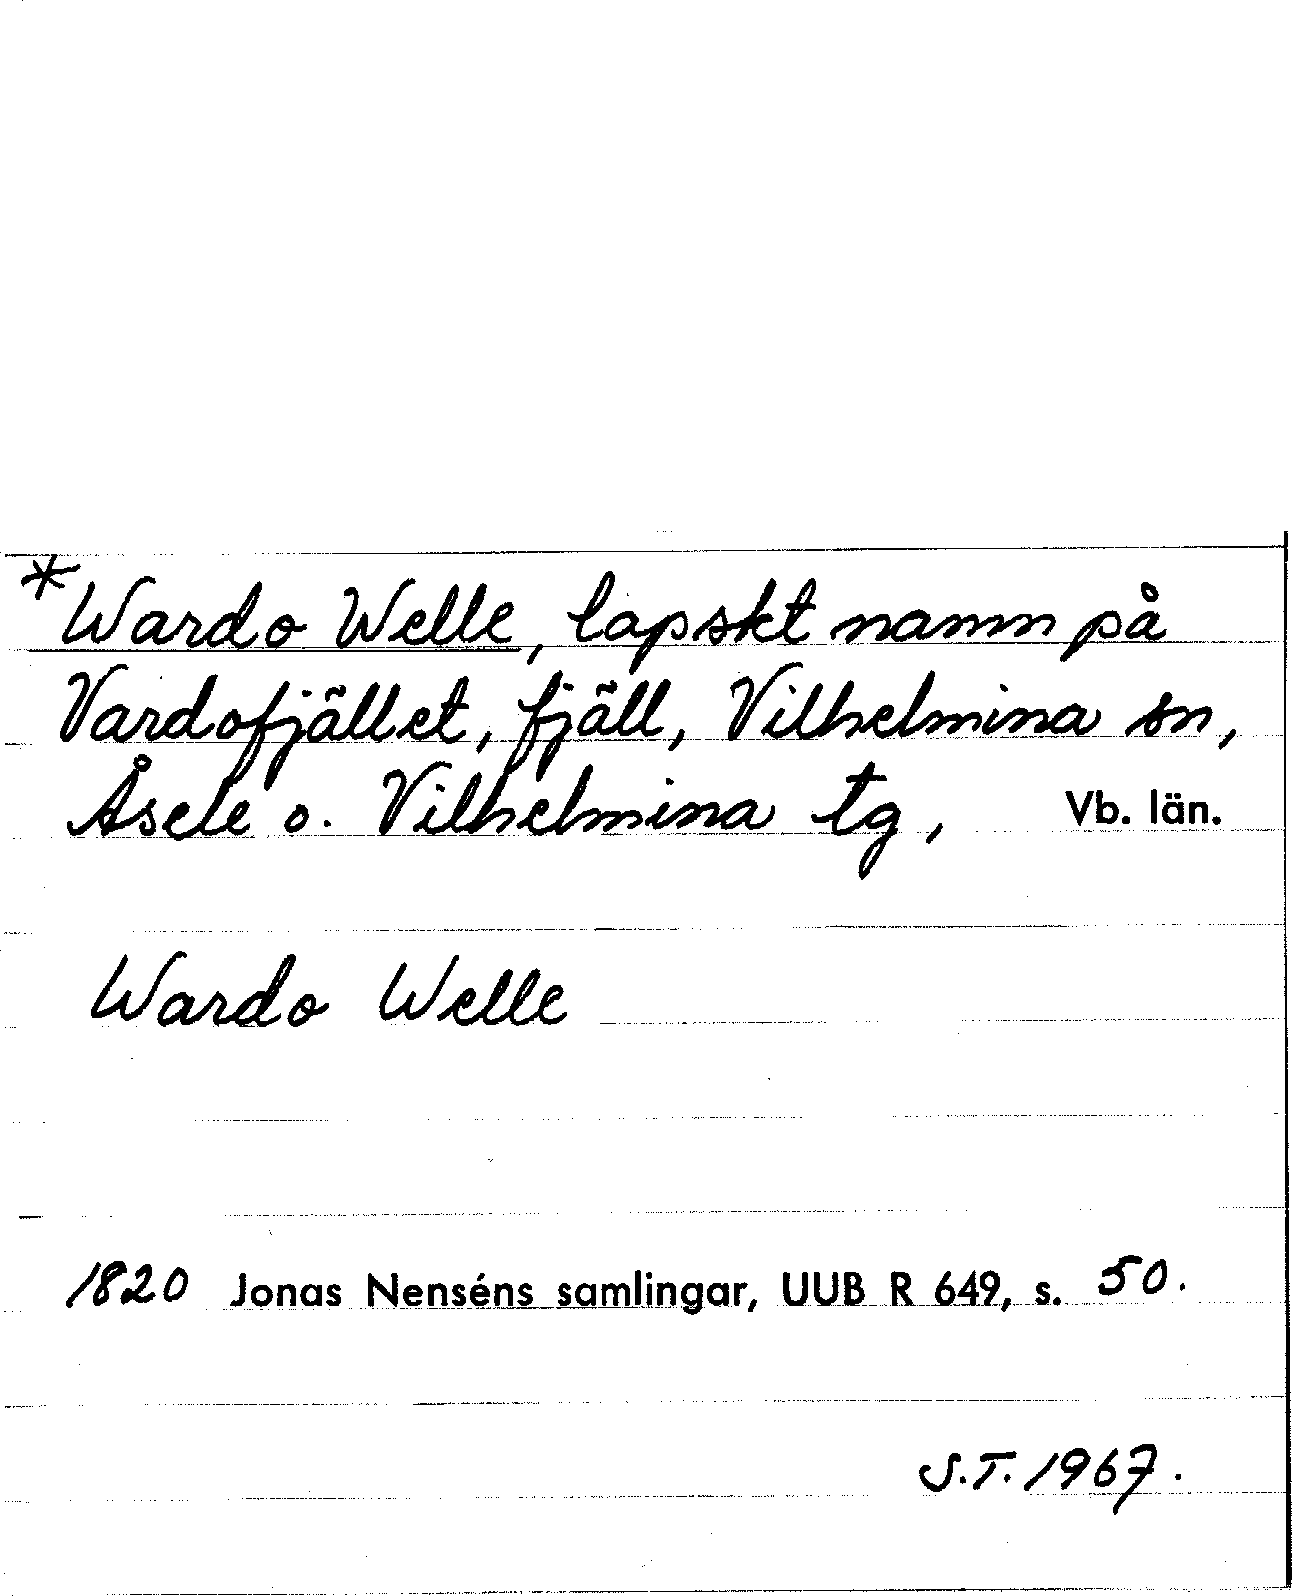 *Wardo Welle, lapskt namn på
Vardofjället, fjäll, Vilhelmina sn,
Åsele o. Vilhelmina tg, Vb. län.
Wardo Welle
1820 Jonas Nenséns samlingar, UUB R 649, s. 50.
S.T. 1967.